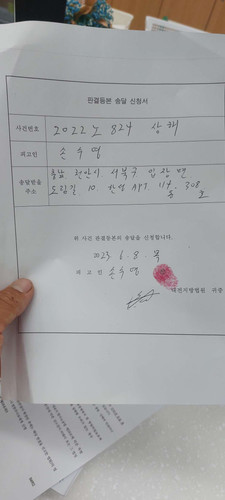 판결등본 송달 신청서
사건번호 2022노 824 상해
피고인 손수영
송달받을 주소 충남 천안시 서북구 입장면
도림길 10 APT 114동 308호
위 사건 판결등본의 송달을 신청합니다.
2023. 6. 8. 목
피고인 손수영
대전지방법원 귀중